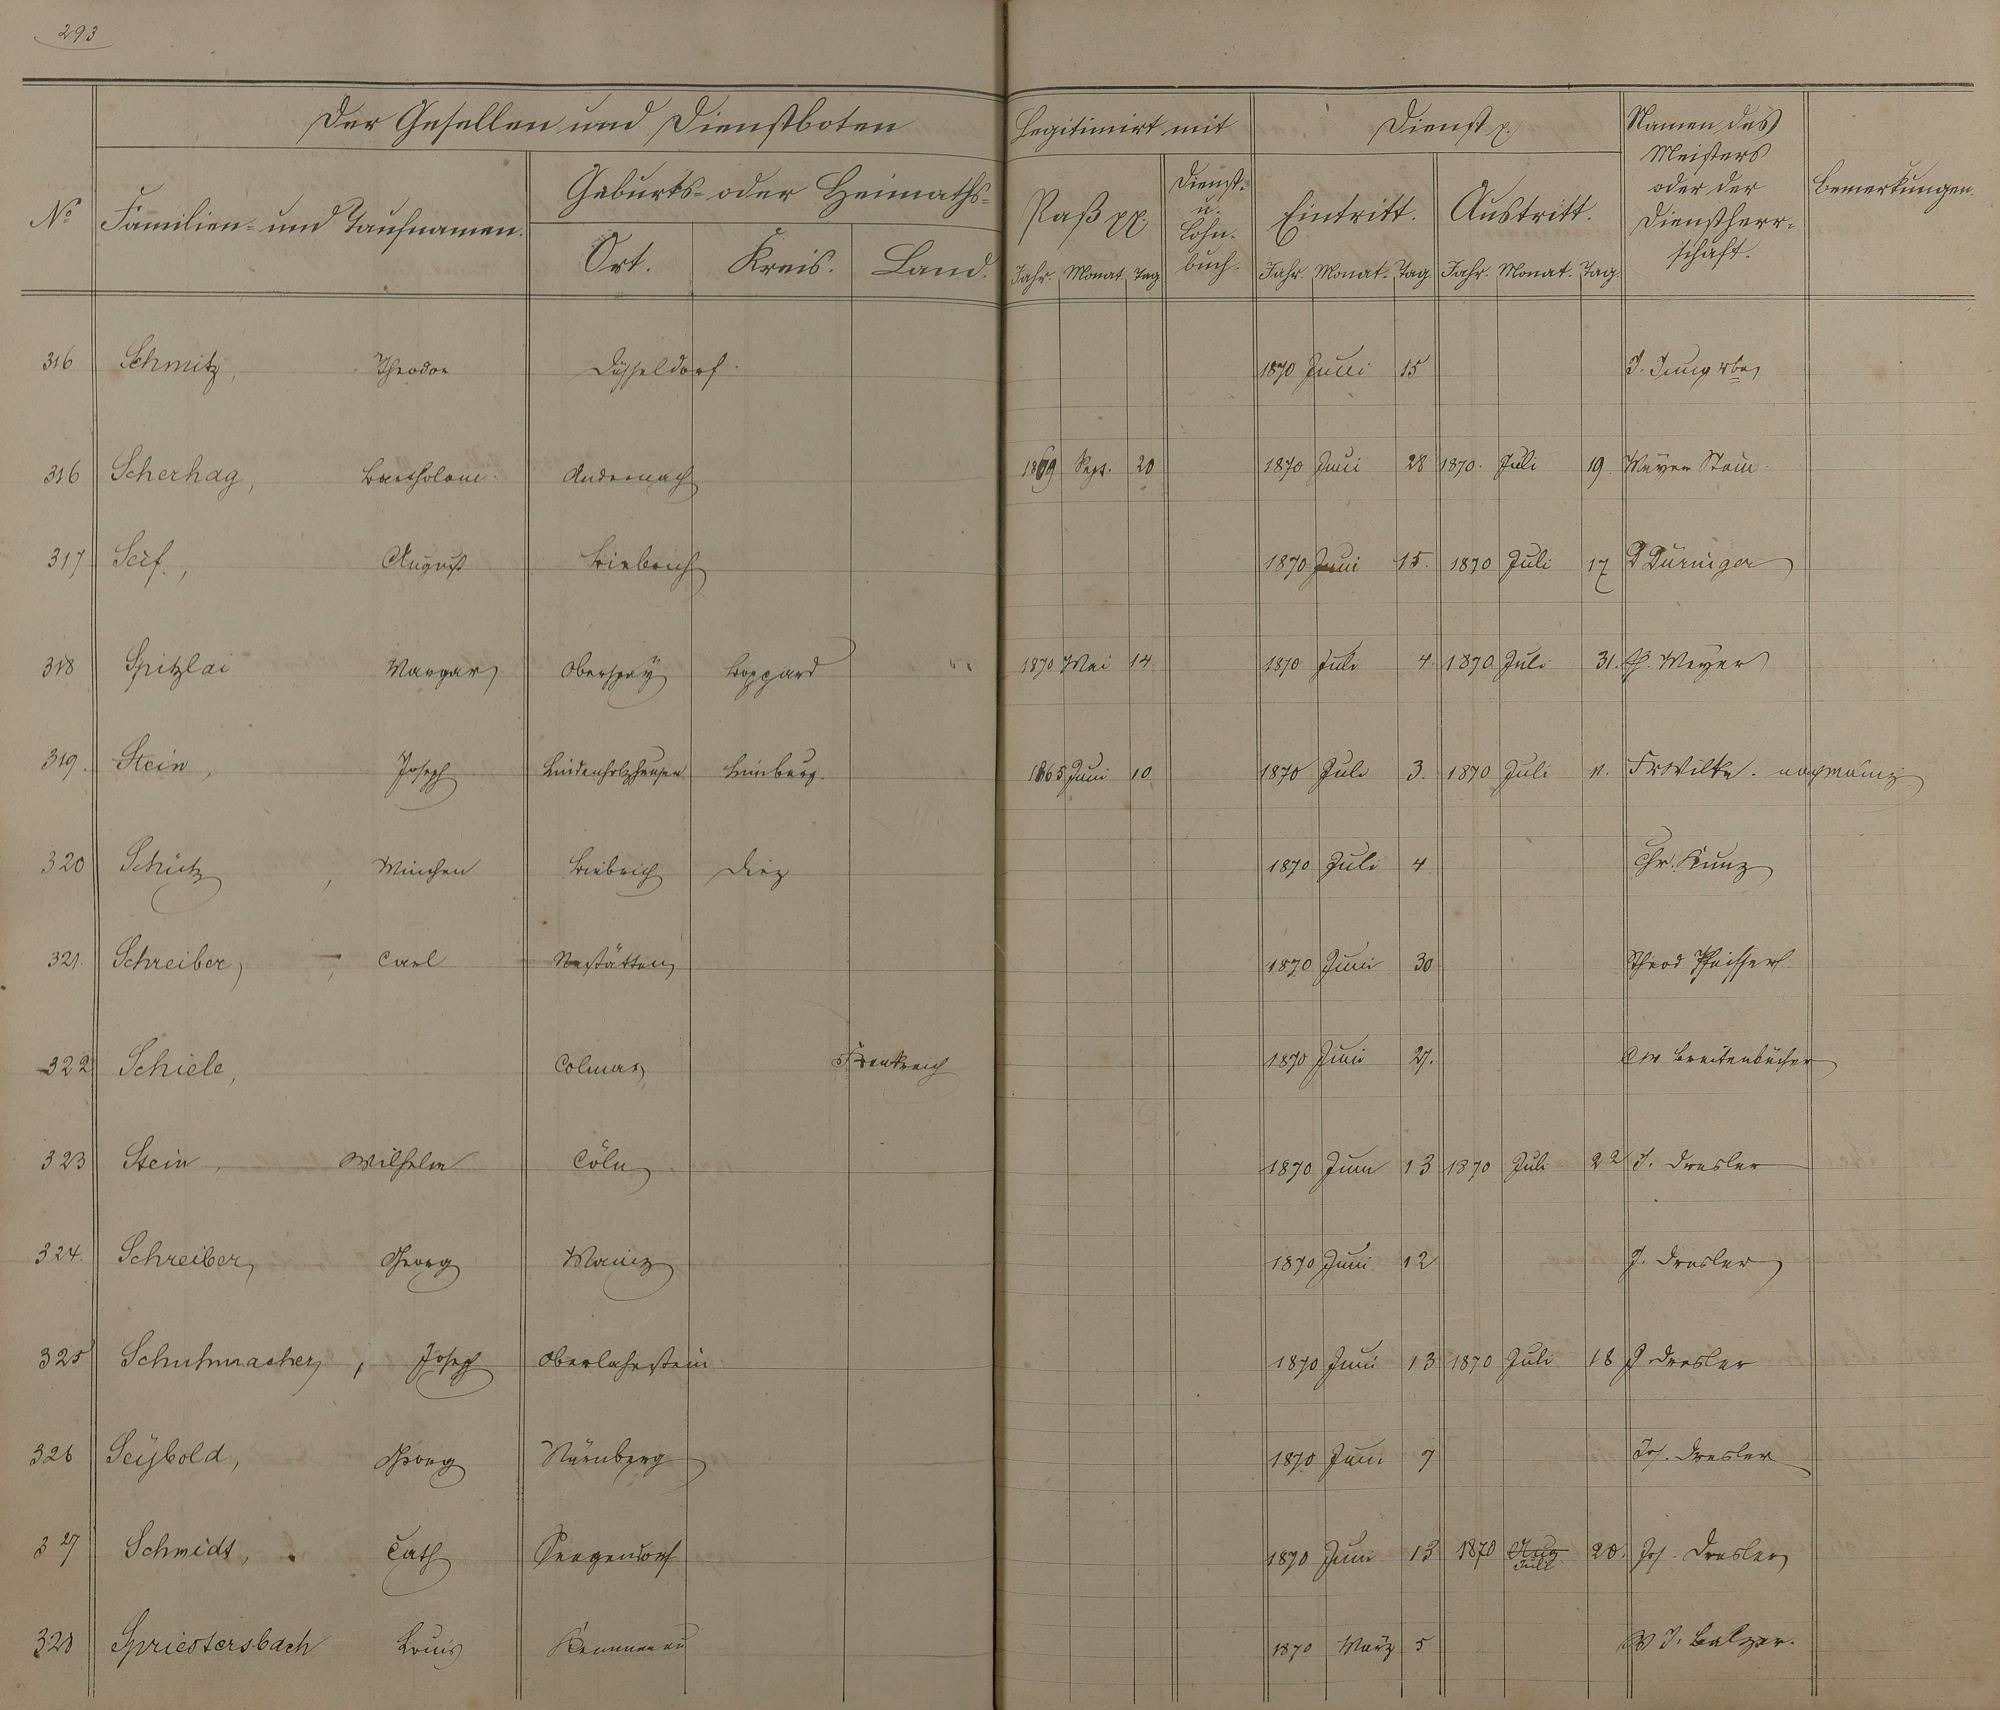 293
Der Gesellen und Dienstboten Legitimirt mit Dienst p. Namen des Meisters oder der Dienstherrschaft. Bemerkungen.
No Familien- und Taufnamen. Geburts- oder Heimaths- Paß pp. Dienst- u. Lohnbuch. Eintritt. Austritt.
Ort. Kreis. Land. Jahr. Monat. Tag Jahr Monat. Tag. Jahr. Monat. Tag.
316 Schmitz, Theodor Düsseldorf. 1870 Juni 15
316 Scherhag, Bartholom. Andernach 1869 Sept. 20 1870 Juni 28 1870. Juli 19. Stein.
317 Seif., August Biebrich 1870 Juni 15. 1870 Juli 17
318 Spitzlai Margar Oberspey Boppard 1870 Mai 14. 1870 Juli 4. 1870 Juli 31. Meyer
319. Stein, Joseph Lindenholzhausen Limburg. 1865 Juni 10 1870 Juli 3. 1870 Juli 11. Fr Wilke. nach Mainz
320 Schütz, Minchen Biebrich Diez 1870 Juli 4 Chr. Kunz
321. Schreiber, Carl Nastätten 1870 Juni 30 Theod Pfeiffer
322 Schiele, Colmar Frankreich 1870 Juni 27. Breitenbücher
323 Stein, Wilhelm Cöln 1870 Juni 13 1870 Juli 22 J. Dresler
324. Schreiber, Georg Mainz 1870 Juni 12 J. Dresler
325 Schuhmacher, Joseph Oberlahnstein 1870 Juni 13 1870 Juli 18 J. Dresler
326 Seÿbold, Georg Nürnberg 1870 Juni 7 Jos. Dresler
327 Schmidt, Cath 1870 Juni 13 1870 Aug Juli 20. Jos. Dresler
328 Spriestersbach Louis Kemmenau 1870 März 5 W J. Balzer.